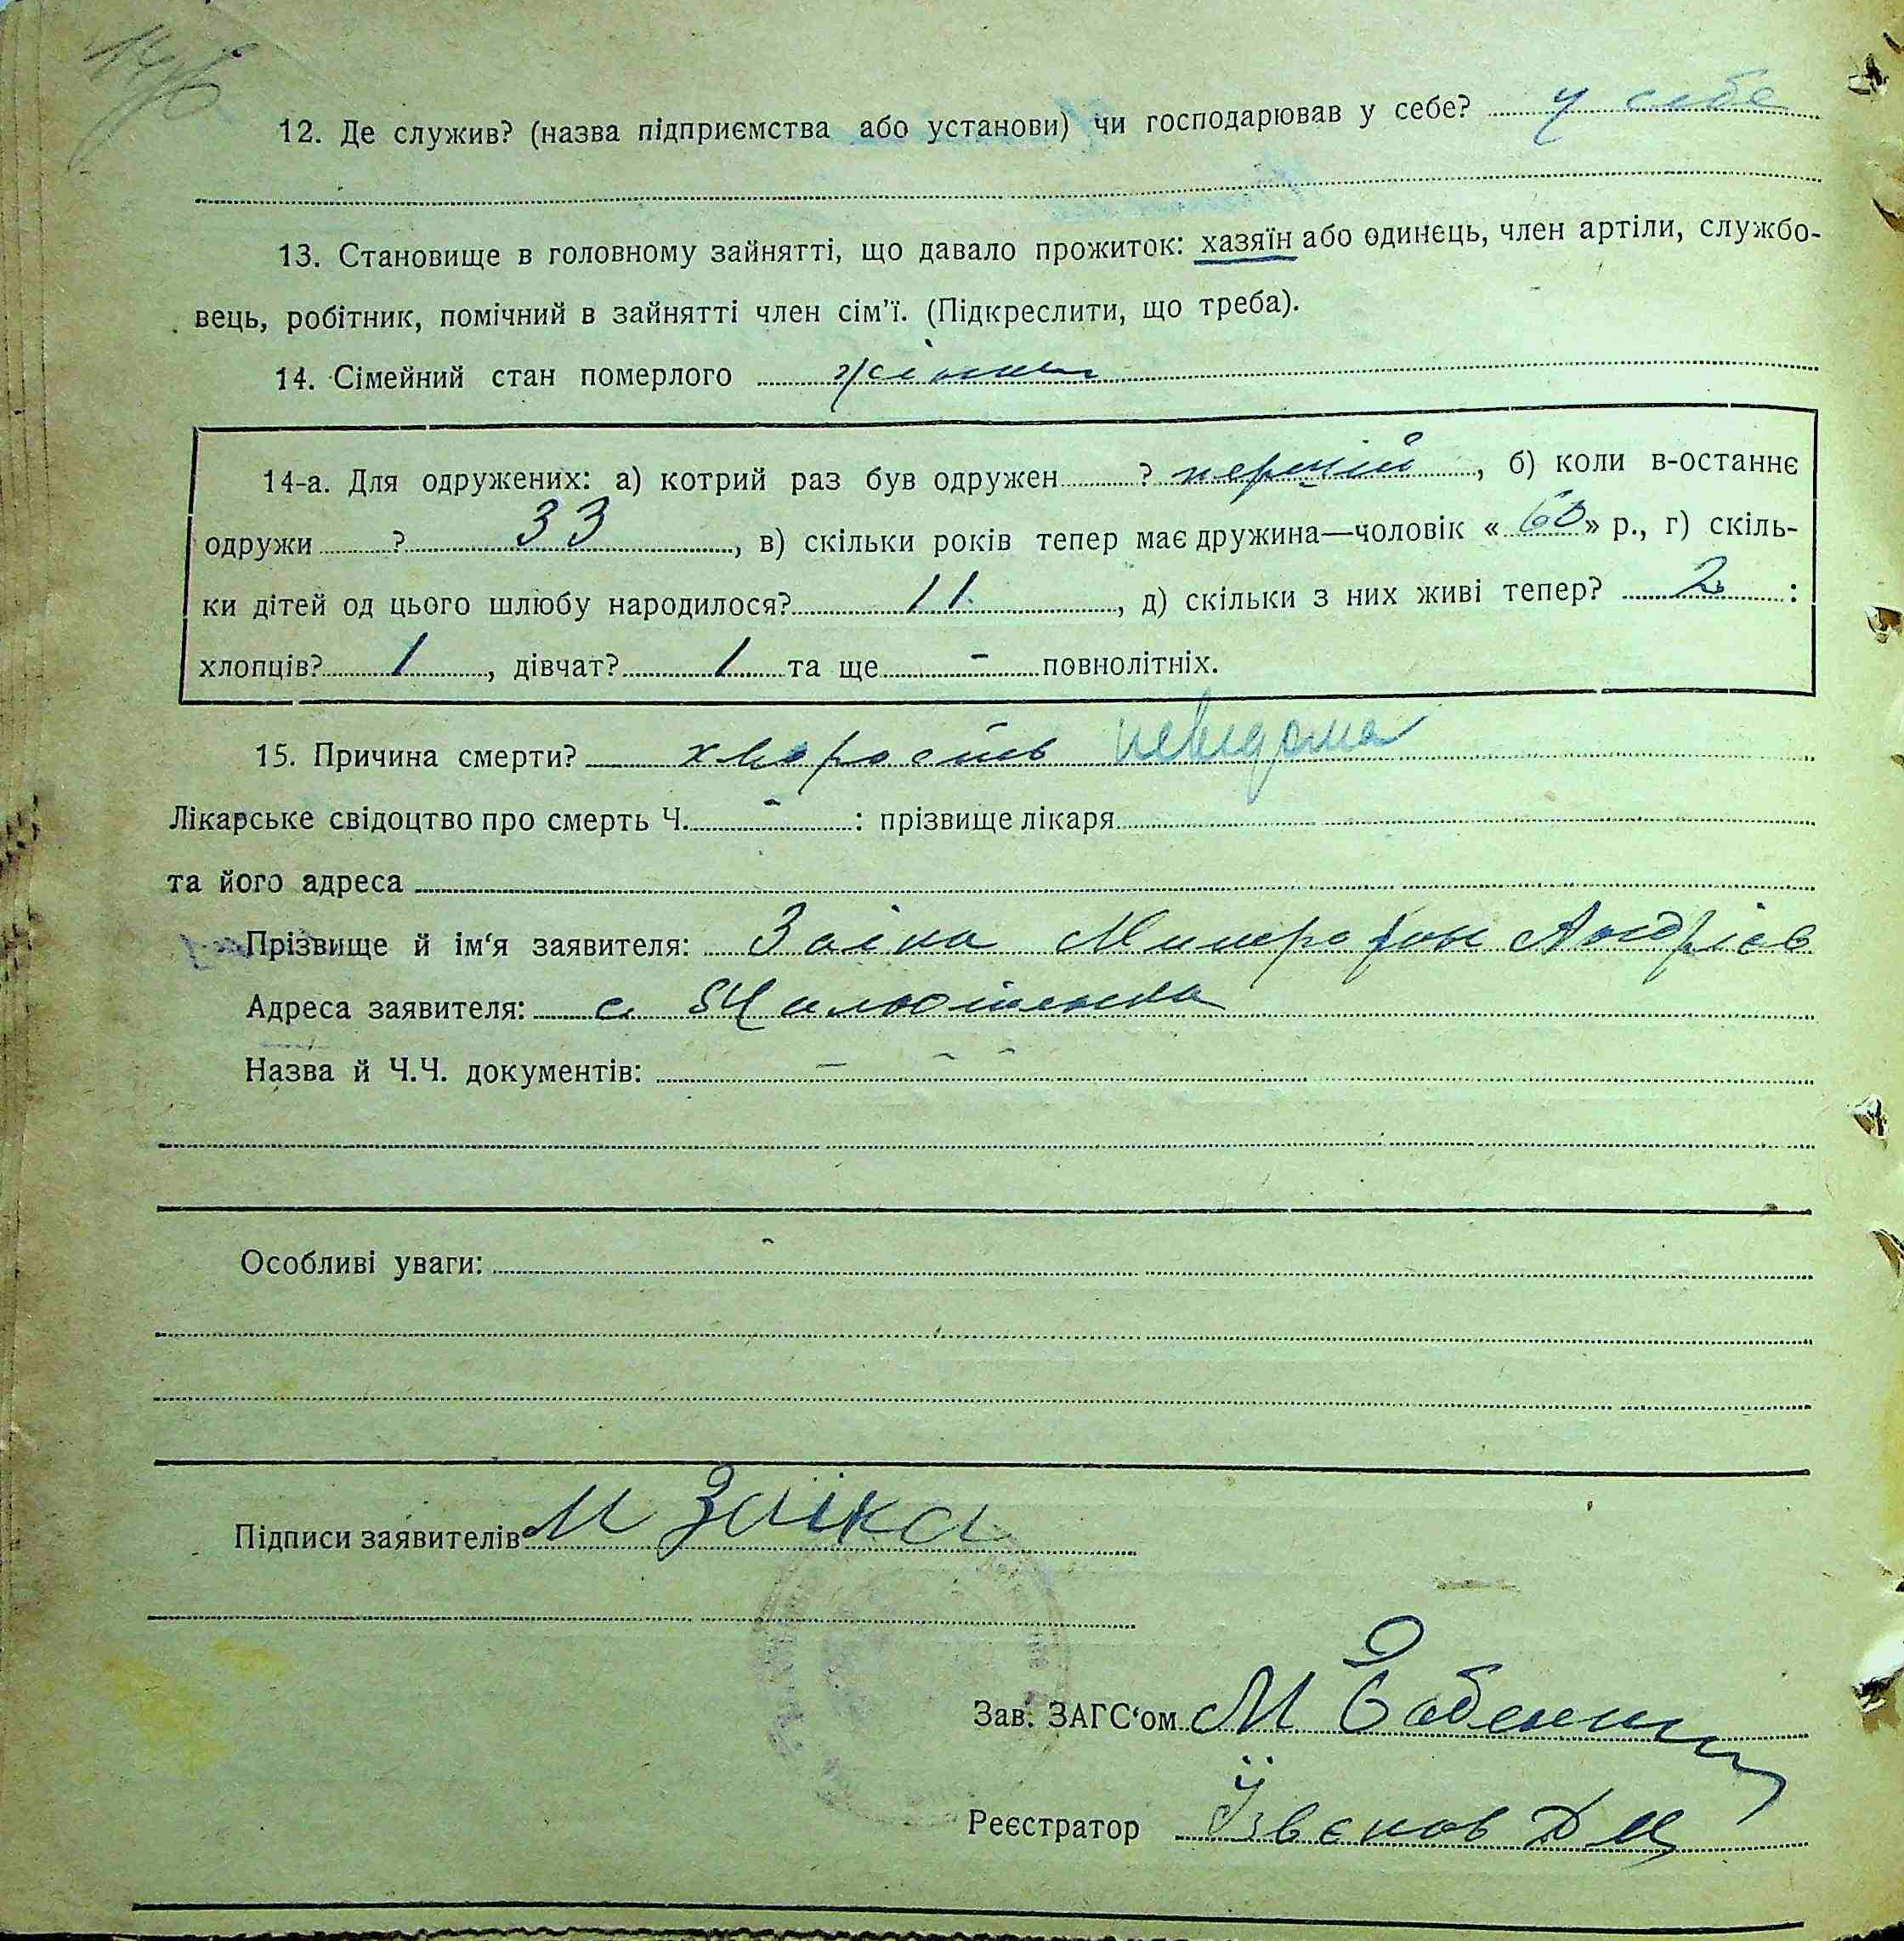 12. Де служив? (назва підприємства або установи) чи господарював у себе? у себе
13. Становище в головному зайнятті, що давало прожиток: хазяїн або одинець, член артіли, службо-
вець, робітник, помічний в зайнятті член сім'ї. (Підкреслити, що треба).
14. Сімейний стан померлого
14-а. Для одружених: а) котрий раз був одружен ? перший, б) коли в-останнє
одружи ? 33, в) скільки років тепер має дружина—чоловік «60» р., г) скіль-
ки дітей од цього шлюбу народилося? 11, д) скільки з них живі тепер? 2 :
хлопців? 1, дівчат? 1 та ще - повнолітніх.
15. Причина смерти? хворость невідома
Лікарське свідоцтво про смерть Ч. - : прізвище лікаря
та його адреса
Прізвище й ім'я заявителя: Заіка Митрофон Андрієв
Адреса заявителя: с.
Назва й Ч.Ч. документів: - - -
Особливі уваги: -
Підписи заявителів М Заіка
Зав. ЗАГС'ом М
Реєстратор